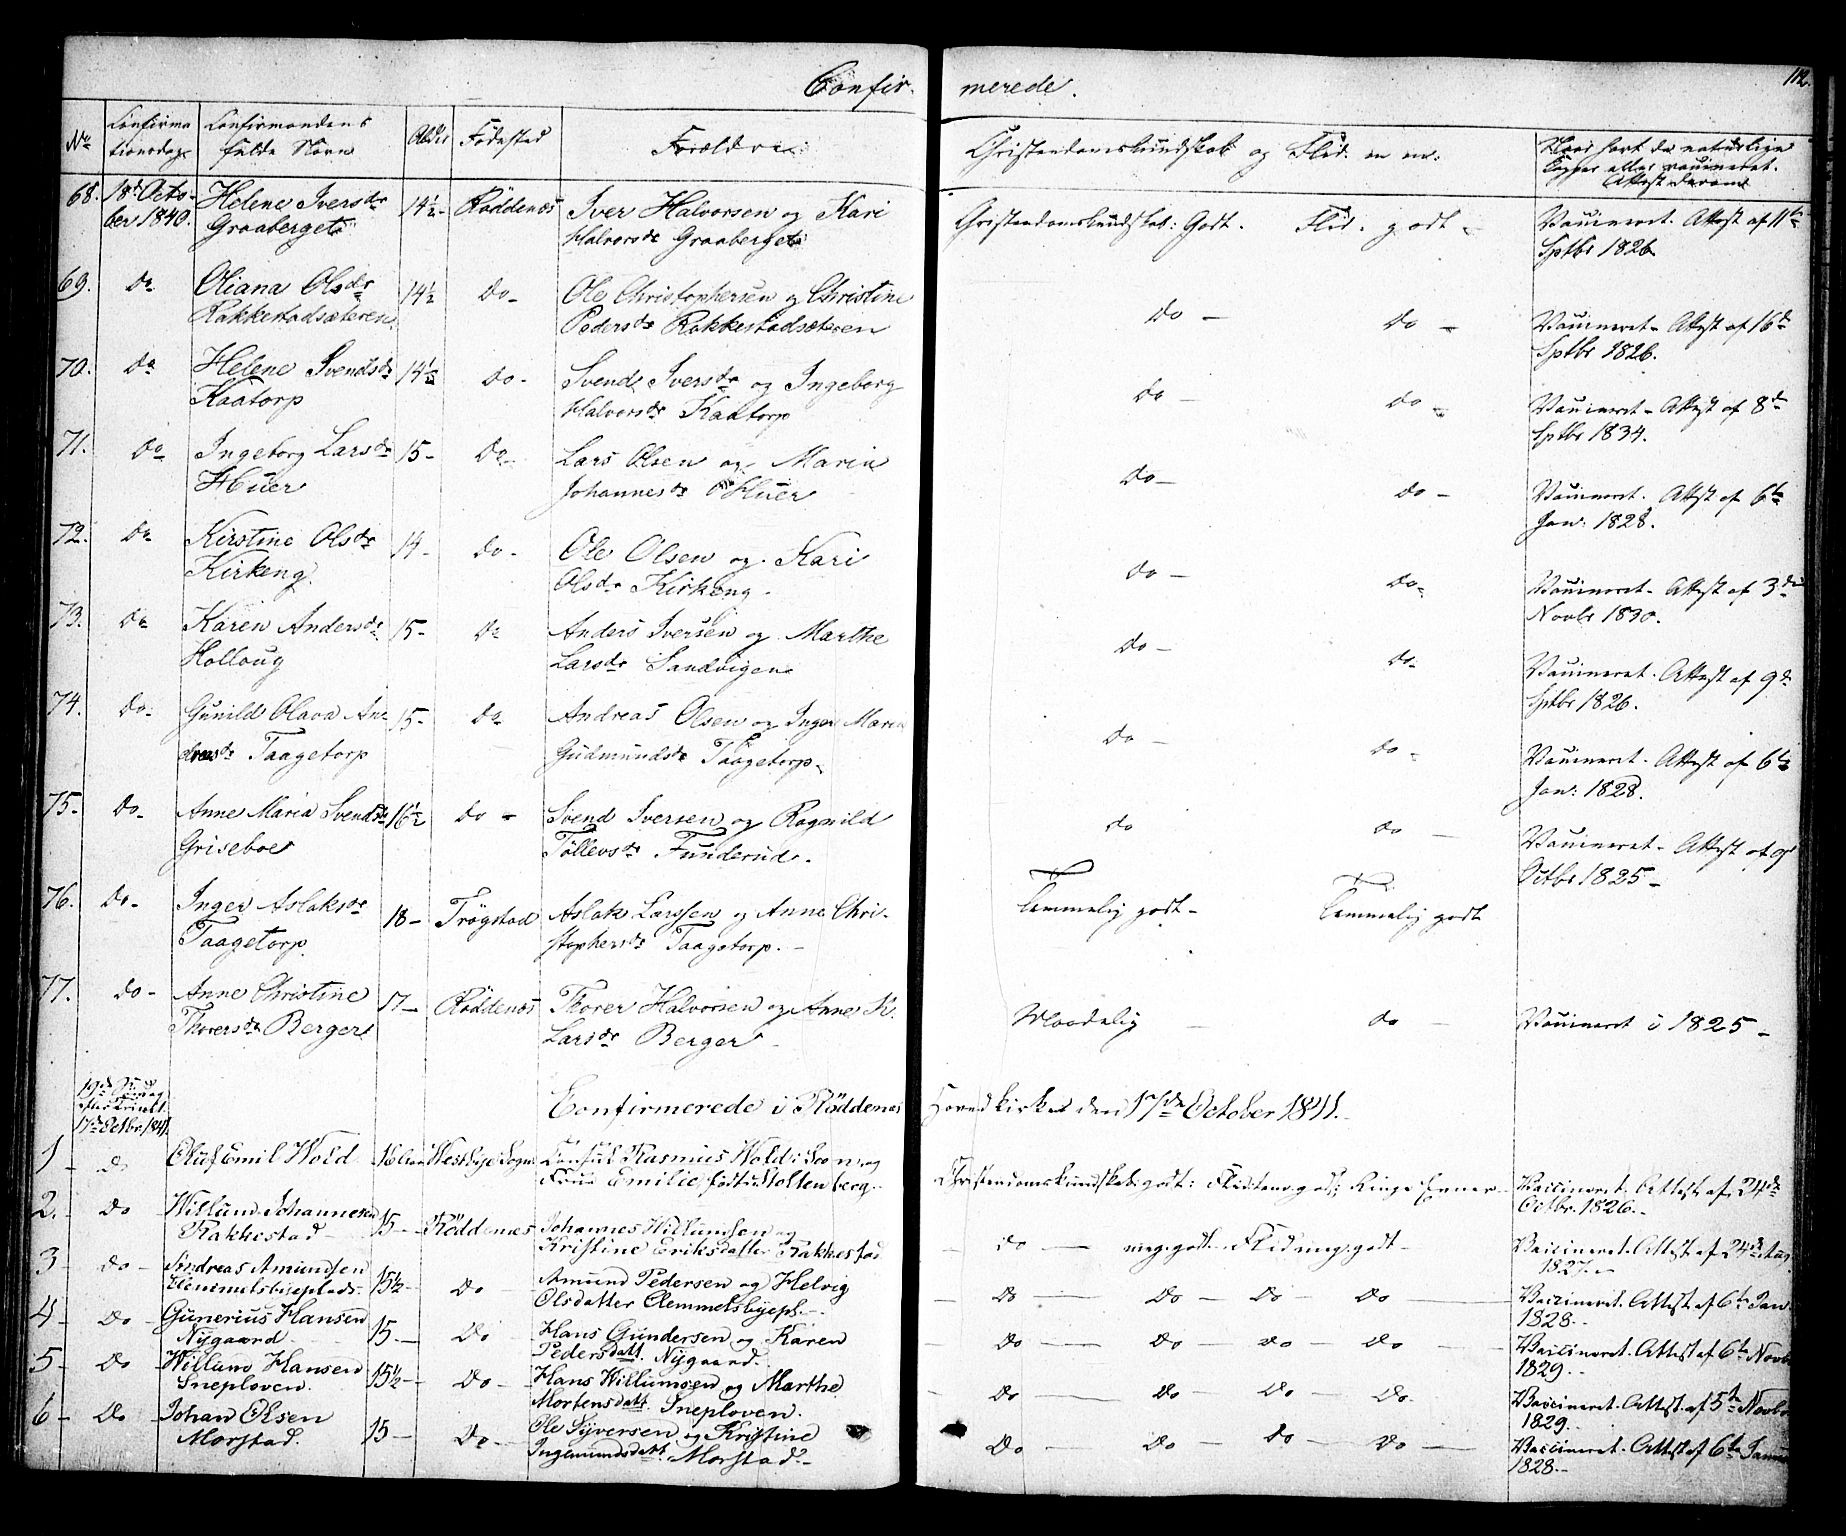 112.
Confirmerede.
No Confirmationsdag Confirmandens fulde Navn Alder Fødested Forældre: Christendomskundskab og Flid. m m: Hvos havt de naturlige Kopper eller vaccineret. Attest derom
68. 18de October 1840. Helene Iversdr Graaberget 14½ Röddenæs Iver Halvorsen og Kari Halvorsdr Graaberget Christendomskundskab: Godt. Flid. godt - Vaccineret. Attest af 11te Sptbr 1826.
69. Do Oliana Olsdr Rakkestadsæteren 14½ Do- Ole Christophersen og Christine Pedersdr Rakkestadsæteren Do - Do - Vaccineret - Attest af 16de Sptbr 1826.
70. Do Helene Svendsdr Kaatorp 14½ Do- Svend Iversdr og Ingeborg Halvorsdr Kaatorp Do - Do - Vaccineret - Attest af 8de Sptbr 1834.
71. Do Ingeborg Larsdr Huer 15- Do- Lars Olsen og Maria Johannesdr Huer Do- Do - Vaccineret. Attest af 6te Jan: 1828.
72. Do Kirstine Olsdr Kirkeng 14- Do- Ole Olsen og Kari Olsdr Kirkeng. Do - Do- Vaccineret - Attest af 3die Novbr 1830.
73. Do Karen Andersdr Holloug 15- Do Anders Iversen og Marthe Larsdr Sandvigen Do - Do- Vaccineret. Attest af 9de Sptbr 1826.
74. Do- Gunild Olava Andreasdr Taagetorp 15- Do Andreas Olsen og Inger Maria Gudmundsdr Taagetorp Do - Do - Vaccineret. Attest af 6te Jan: 1828.
75- Do- Anne Maria Svendsdr Griseboe 16½ Do - Svend Iversen og Ragnild Tollevsdr Funderud. Do Do - Vaccineret - Attest af 9de Octbr 1825 -
76. Do- Inger Aslaksdr Taagetorp. 18- Trögstad Aslak Larssen og Anne Christophersdr Taagetorp. - Temmelig godt - Temmelig godt
77. Do - Anne Christine Thorersdr Berger 17- Röddenæs Thorer Halvorsen og Anne K. Larsdr Berger - Maadelig - Do - Vaccineret i 1825 -
19de Søndag efter Trinit. 17de Octbr. 1841. Confirmerede i Röddenæs Hovedkirke den 17de October 1841.
1 - Do Oluf Emil Wold 16 Westbye Sogn Consul Rasmus Wold i Soon og Frue Emilie født Stoltenberg. Christendomskundskab: godt: Flid: meg: godt; Ringe Evner - Vaccineret. Attest af 24de Octbr. 1826.-
2.- Do Willum Johannesen Rakkestad 15- Röddenæs Johannes Willumsen og Kristine Eriksdatter Rakkestad - Do - meg: godt. Flid meg: godt - Vaccineret. Attest af 24de Aug 1827.-
3- Do - Andreas Amundsen Klemmelsbyeplads. 15½- Do Amund Pedersen og Helvig Olsdatter Clemmelsbyepl. - Do - Do - Do - Do - Vaccineret. Attest af 6te Jan 1828.-
4- Do - Gunerius Hansen Nygaard. 15- Do Hans Gundersen og Karen Pedersdatt. Nygaard. - Do - Do - Do - Do - Vaccineret. Attest af 6te Novb 1829.-
5- Do - Willum Hansen Sneploven. 15½- Do - Hans Willumsen og Marthe Mortensdatt. Sneploven. - Do - Do - Do - Do. - Vaccineret. Attest af 5te Novbr 1829.-
6- Do - Johan Olsen Morstad. 15- Do- Ole Syversen og Kristine Ingemundsdatt. Morstad.- Do - Do - Do - Do - Vaccineret. Attest af 6te Januar 1828.-